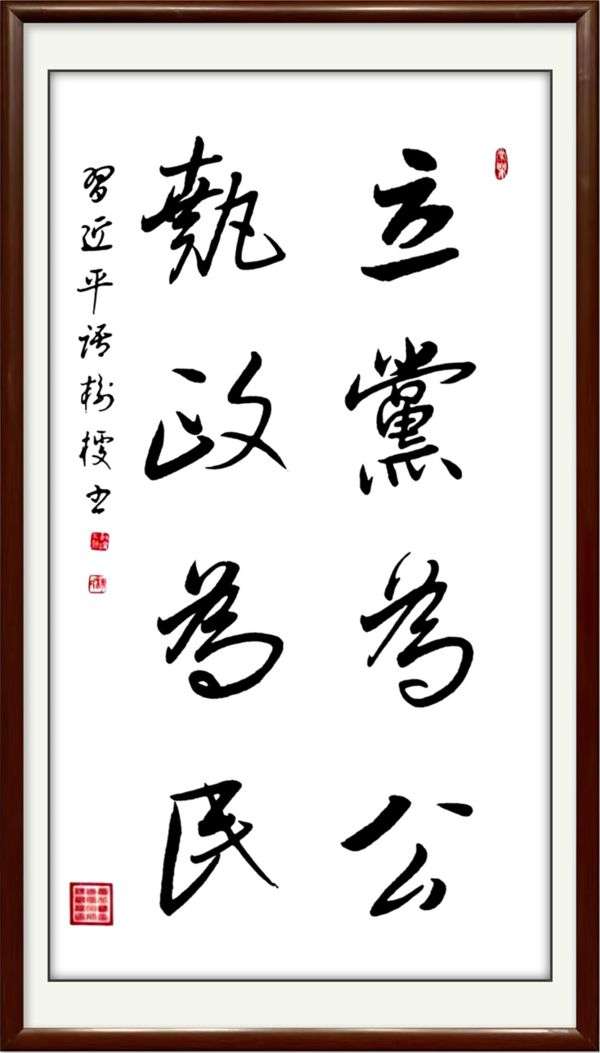 立黨為公
執政為民
習近平語樹樓書